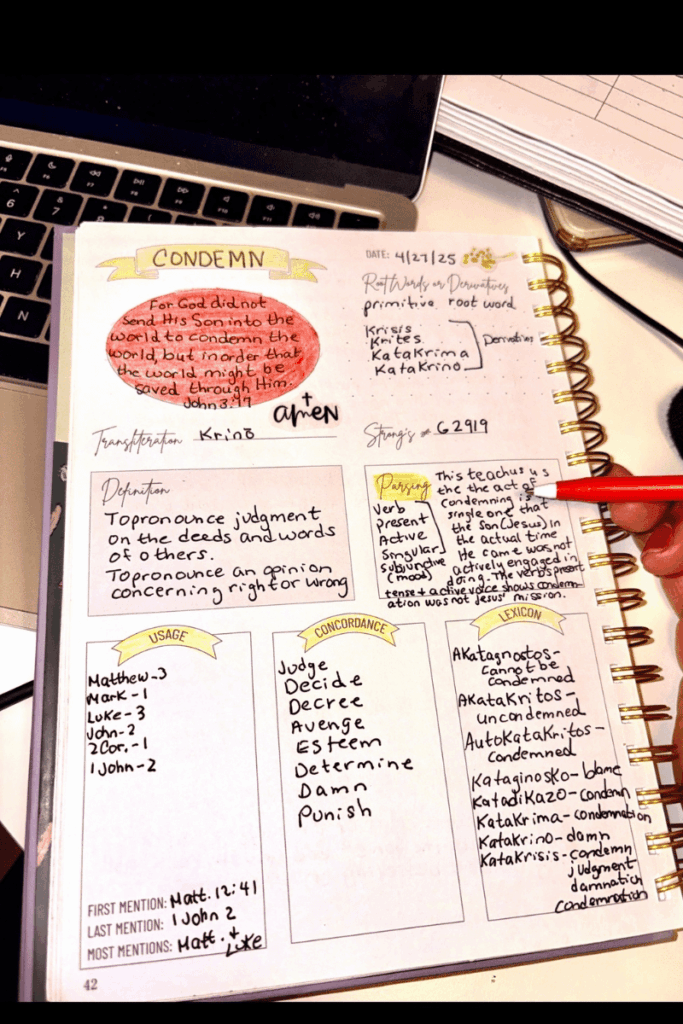 CONDEMN
DATE: 4/27/25
For God did not
send His Son into the
world to condemn the
world, but in order that
the world might be
saved through Him.
John 3:17
+
amEN
Root Words or Derivatives
primitive root word
Krisis
Krites
Katakrima
Katakrino
Transliteration Krinō
Strong's # G2919
Definition
To pronounce judgment
on the deeds and words
of others.
To pronounce an opinion
concerning right or wrong
Parsing
Verb
present
Active
Singular
Subjunctive
(mood)
This teachus us
the the act of
condemning is a
single one that
the Son (Jesus) In
the actual time
He came was not
actively engaged in
doing. The verb's present
tense + active voice shows condemn-
ation was not Jesus' mission.
USAGE
Matthew-3
Mark-1
Luke-3
John-2
2Cor.-1
1 John-2
FIRST MENTION: Matt. 12:41
LAST MENTION: 1 John 2
MOST MENTIONS: Matt. + Luke
CONCORDANCE
Judge
Decide
Decree
Avenge
Esteem
Determine
Damn
Punish
LEXICON
AKatagnostos-
cannot be
condemned
AKataKritos-
uncondemned
AutoKataKritos-
condemned
Kataginosko-blame
KatadiKazo-condemn
KataKrima-condemnation
KataKrino-damn
KataKrisis-condemn
judgment
damnation
condemnation
42